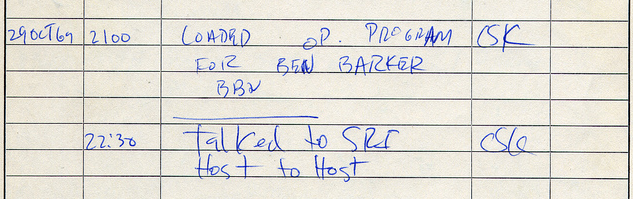 29OCT69 2100 LOADED OP. PROGRAM CSK
FOR BEN BARKER
BBN
22:30 Talked to SRI CSK
Host to Host